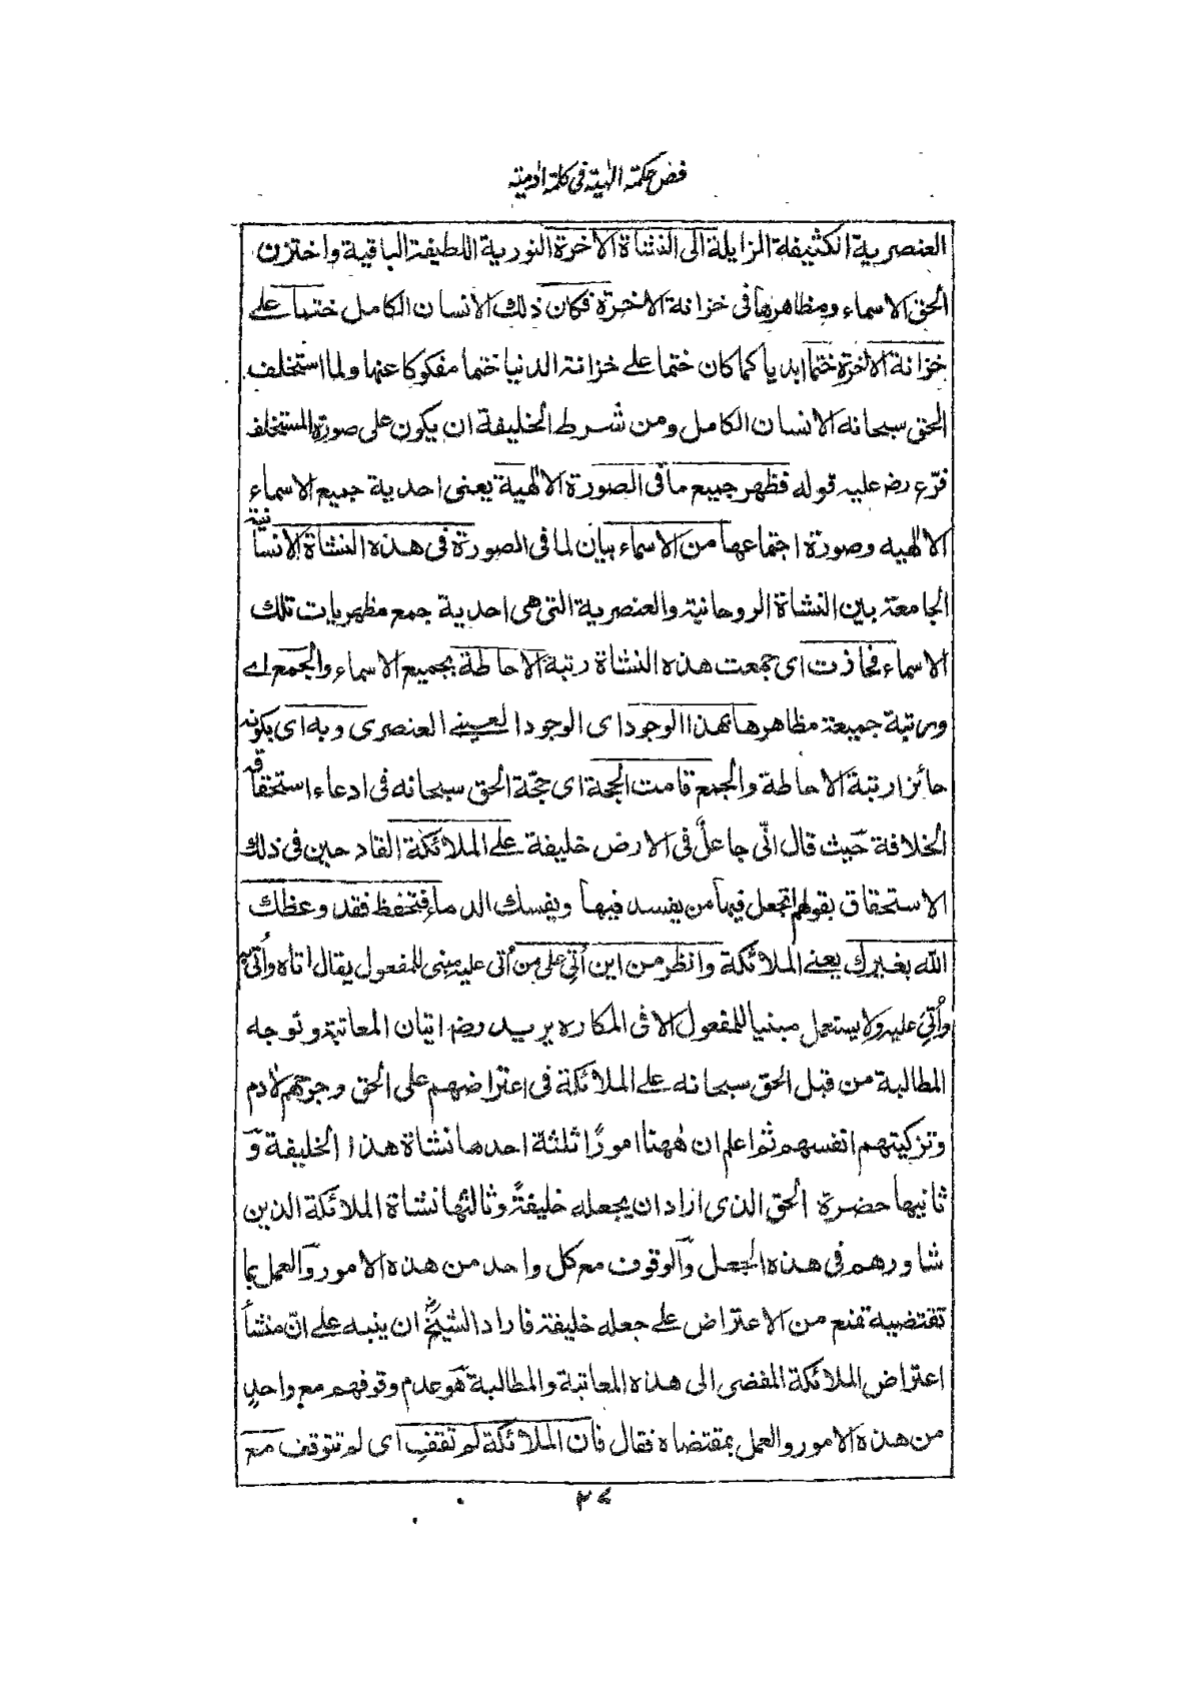 فص حكمة الهية فى كلمة ادمية
العنصرية الكثيفة الزايلة الى النشاة الاخرة النورية اللطيفة الباقية واختزن
الحق الاسماء ومظاهرها فى خزانة الاخرة فكان ذلك الانسان الكامل ختما على
خزانة الاخرة ختما ابديا كما كان ختما على خزانة الدنيا ختما مفكوكا عنها ولما استخلف
الحق سبحانه الانسان الكامل ومن شرط الخليفة ان يكون على صورة المستخلف
فرّع رضـ عليه قوله فظهر جميع ما فى الصورة الالٰهية يعنى احدية جميع الاسماء
الالٰهيه وصورة اجتماعها من الاسماء بيان لما فى الصورة فى هذه النشاة الانسانية
الجامعة بين النشاة الروحانية والعنصرية التى هى احدية جمع مظهريات تلك
الاسماء فحازت اى جمعت هذه النشاة رتبة الاحاطة بجميع الاسماء والجمع اے
ومرتبة جميعة مظاهرها بهذا الوجود اى الوجود العينے العنصرى وبه اى بكونه
حائزا رتبة الاحاطة والجمع قامت الحجة اى حجّة الحق سبحانه فى ادعاء استحقاقه
الخلافة حيث قال انّى جاعلٌ فى الارض خليفة علے الملائكة القادحين فى ذلك
الاستحقاق بقولهم اتجعل فيها من يفسد فيها ويفسك الدماء فتحفظ فقد وعظك
الله بغيرك يعنے الملائكة وانظر من اين اُتِى على من اُتى عليه مبنى للمفعول يقال اتاه واُتى به
واُتِىَ عليه ولا يستعمل مبنيا للمفعول الا فى المكاره يريد رضـ اتيان المعاتبة وتوجه
المطالبة من قبل الحق سبحانه علے الملائكة فى اعتراضهم على الحق وجرحهم لادم
وتزكيتهم انفسهم ثم اعلم ان ههنا امورًا ثلثة احدها نشاة هذا الخليفة و
ثانيها حضرة الحق الذى اراد ان يجعله خليفةً وثالثها نشاة الملائكة الذين
شاورهم فى هذه الجعل والوقوف مع كل واحد من هذه الامور والعمل بما
تقتضيه تمنع من الاعتراض علے جعله خليفة فاراد الشيخؓ ان ينبه علے انّ منشأ
اعتراض الملائكة المفضى الى هذه المعاتبة والمطالبة هو عدم وقوفهم مع واحدٍ
من هذه الامور والعمل بمقتضاه فقال فان الملائكة لم تقف اى لم تتوقف مع
۲۷